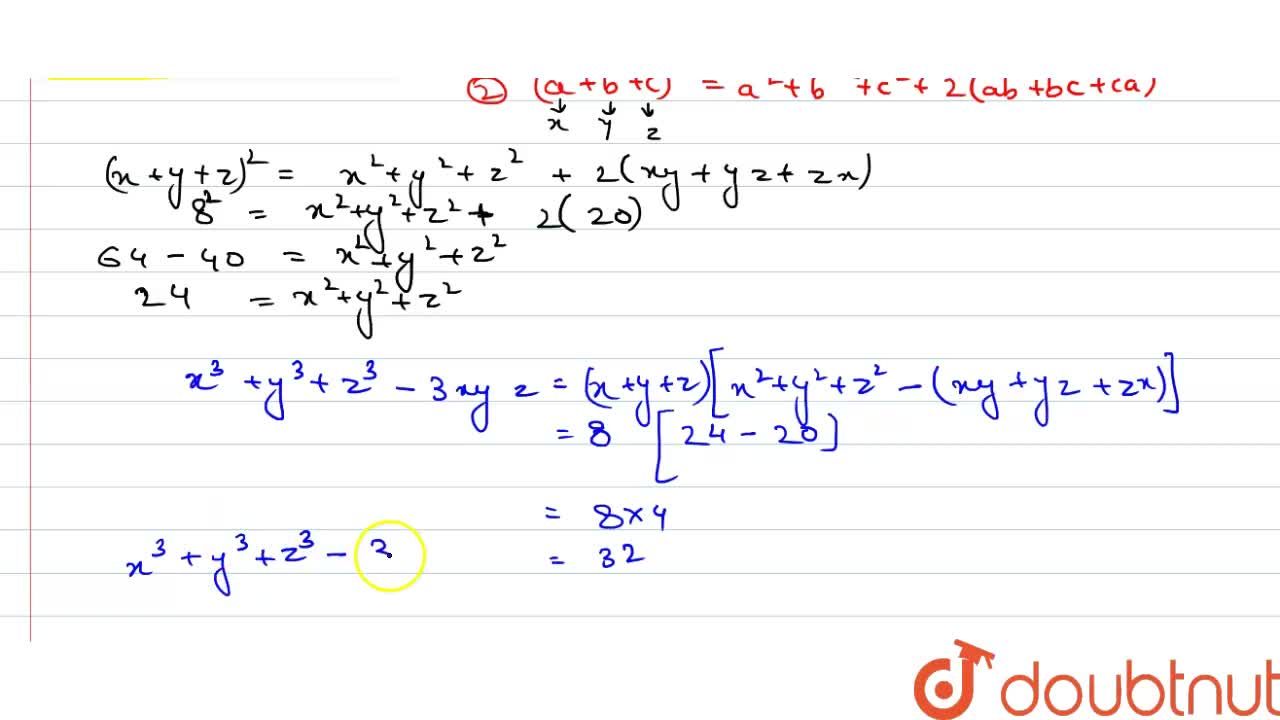 ② (a+b+c) = a²+b +c²+ 2(ab+bc+ca)
↓ ↓ ↓
x y z
(x+y+z)² = x²+y²+z² + 2(xy+yz+zx)
8² = x²+y²+z²+ 2(20)
64-40 = x²+y²+z²
24 = x²+y²+z²
x³+y³+z³-3xyz = (x+y+z)[x²+y²+z²-(xy+yz+zx)]
= 8 [24-20]
= 8×4
= 32
x³+y³+z³-3
doubtnut